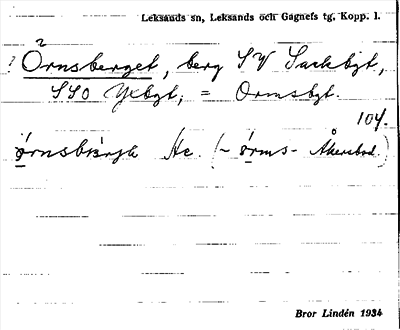 Leksands sn, Leksands och Gagnefs tg, Kopp. l.
? Örnsberget, berg SV Sackbgt,
SSO Yxbgt, = Ormsbgt.
104.
Hc. (~ ørms- Åkersbod.)
Bror Lindén 1934